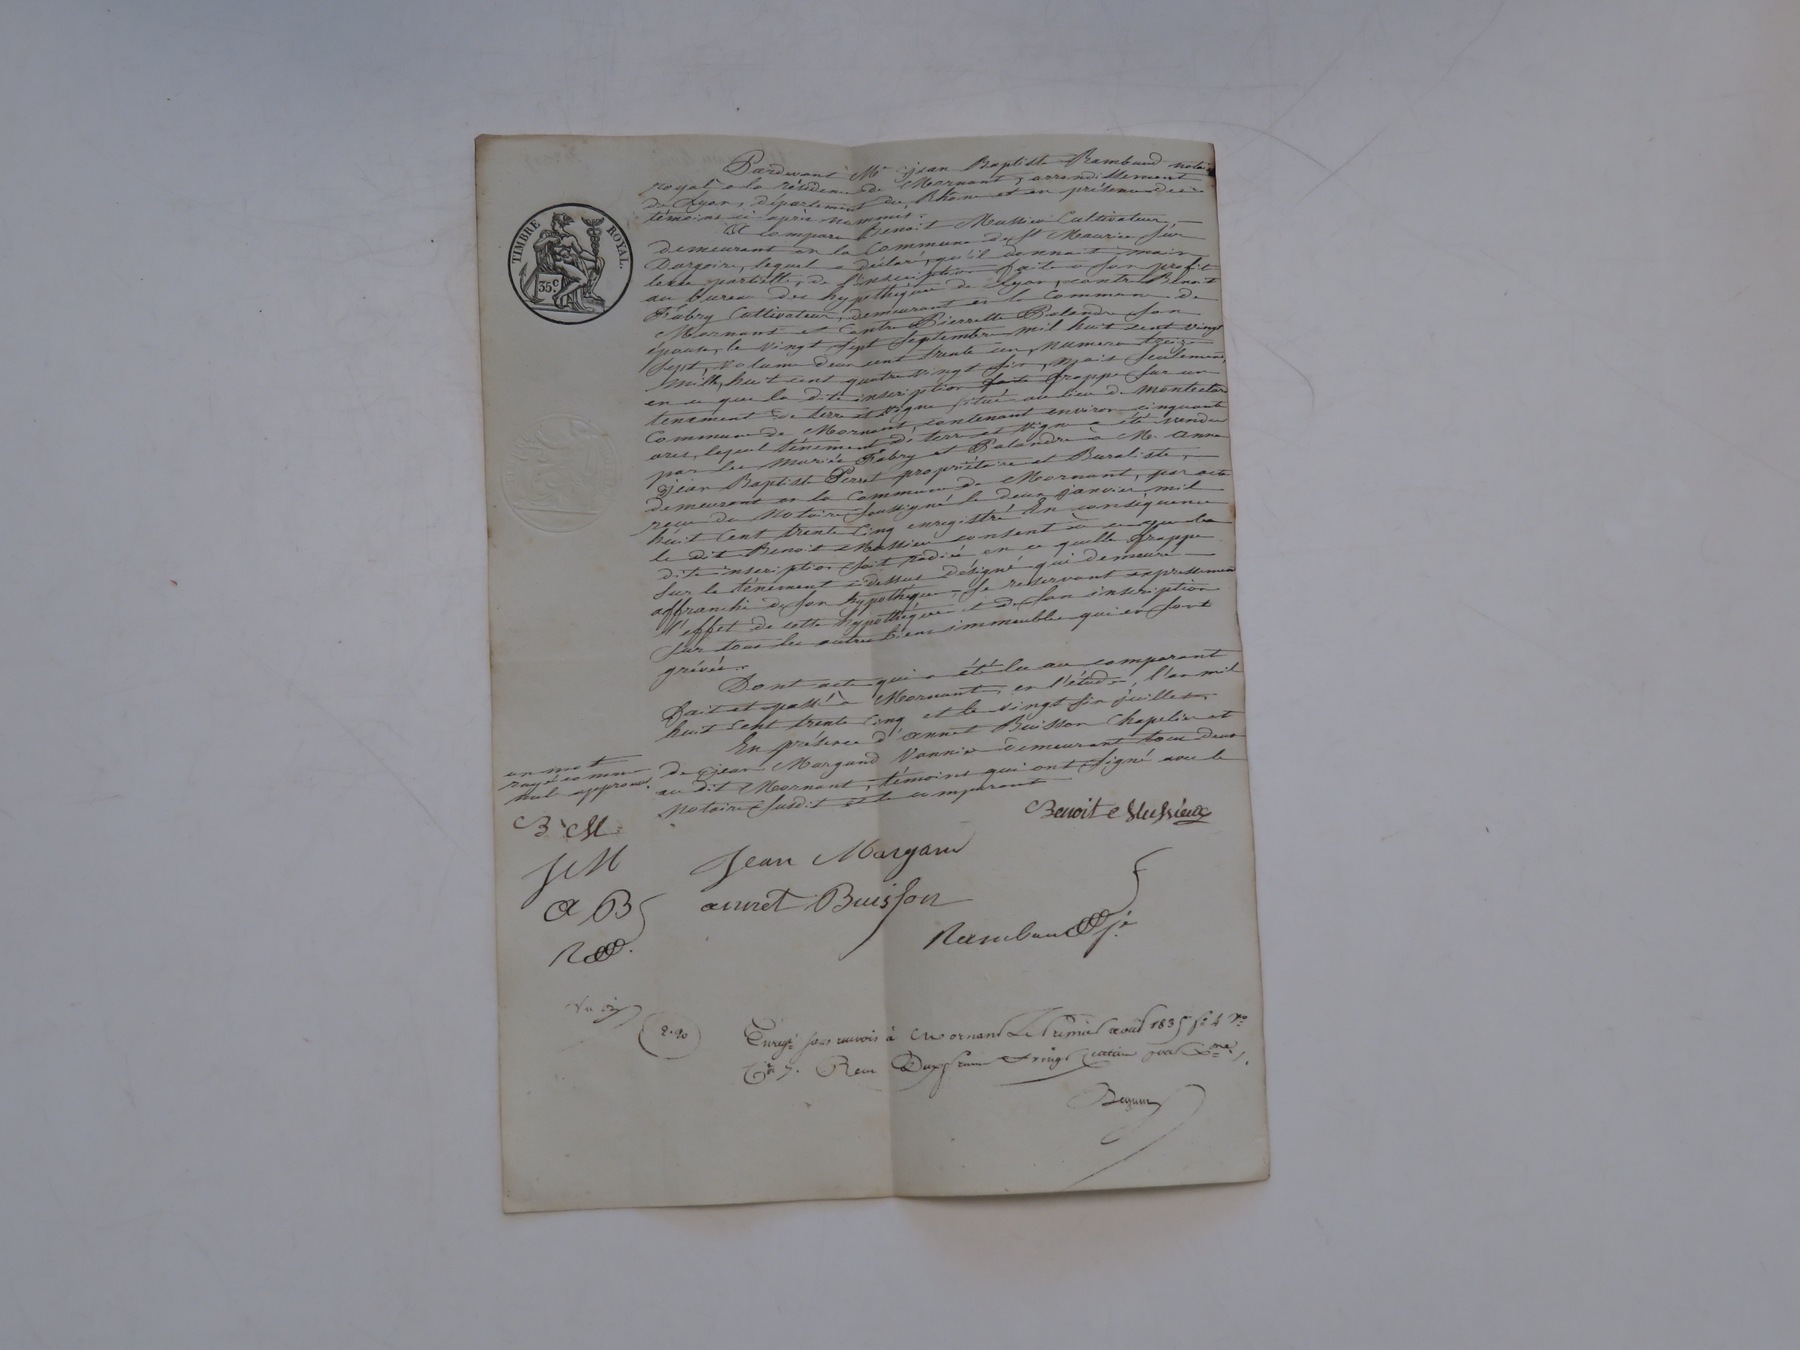 Pardevant Me jean Baptiste Rambaud notaire
royal a la résidence de Mornant, arrondissement
de Lyon, département du Rhône et en présence des
témoins ci-après nommés.
A comparu Benoit Mussieu Cultivateur,
demeurant en la Commune de St Maurice sur
Dargoire, lequel a déclaré, qu'il donnait main
levée partielle, de l'inscription faite a son profit
au bureau des hypothèques de Lyon, contre Benoit
Fabry Cultivateur, demeurant en la Commune de
Mornant et Contre Pierrette Palandre son
épouse, le vingt sept Septembre mil huit cent vingt
sept, Volume deux cent trente un, numéro treize
mille, huit cent quatre vingt six, Mais seulement
en ce que la dite inscription frappe sur un
tenement de terre et vigne situé au lieu de
Commune de Mornant, contenant environ cinquante
ares, lequel ténement de terre et vigne a été vendu
par les Mariés Fabry et Palandre à M. Anne
jean Baptiste Perret propriétaire et Buraliste,
demeurant en la Commune de Mornant, par acte
reçu du Notaire soussigné le deux janvier mil
huit cent trente cinq enregistré En conséquence
le dit Benoit Mussieu consent à ce que la
dite inscription soit radiée en ce quelle frappe
sur le ténement ci dessus désigné qui demeure
affranchi de son hypothèque, se réservant expressément
l'effet de cette hypothèque et de son inscription
sur tous les autres biens immeubles qui en sont
grévés.
Dont acte qui a été lu au comparant
Fait et passé à Mornant, en l'étude, l'an mil
huit cent trente cinq et le vingt six juillet,
En présence d'annet Buisson Chapelier et
de jean Margand Vannier demeurant tous deux
au dit Mornant, témoins qui ont signé avec le
Notaire susdit et le comparant
TIMBRE ROYAL.
35c.
un mot
rayé comme
nul approuvé.
B. M
J M
A B
R
Benoit Mussieux
Jean Margand
annet Buisson
Rambaud je
2.20
Enregé sans renvois à Mornant Le Premier août 1835 fo 4 Vo
Ce 7. Reçu Deux francs vingt centimes pour Dme